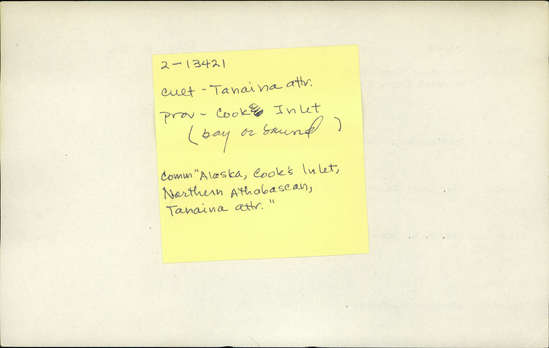 2-13421
cult - Tanaina attr.
prov - Cook Inlet
(bay or sound)
comm "Alaska, Cook's Inlet,
Northern Athabascan,
Tanaina attr."